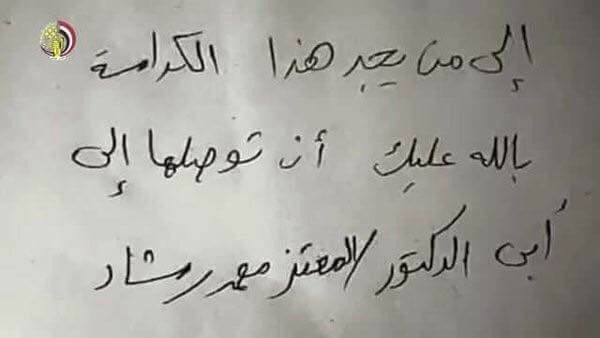 إلى من يجد هذا الكراسة
بالله عليك أن توصلها إلى
أبي الدكتور / المعتز محمد رشاد